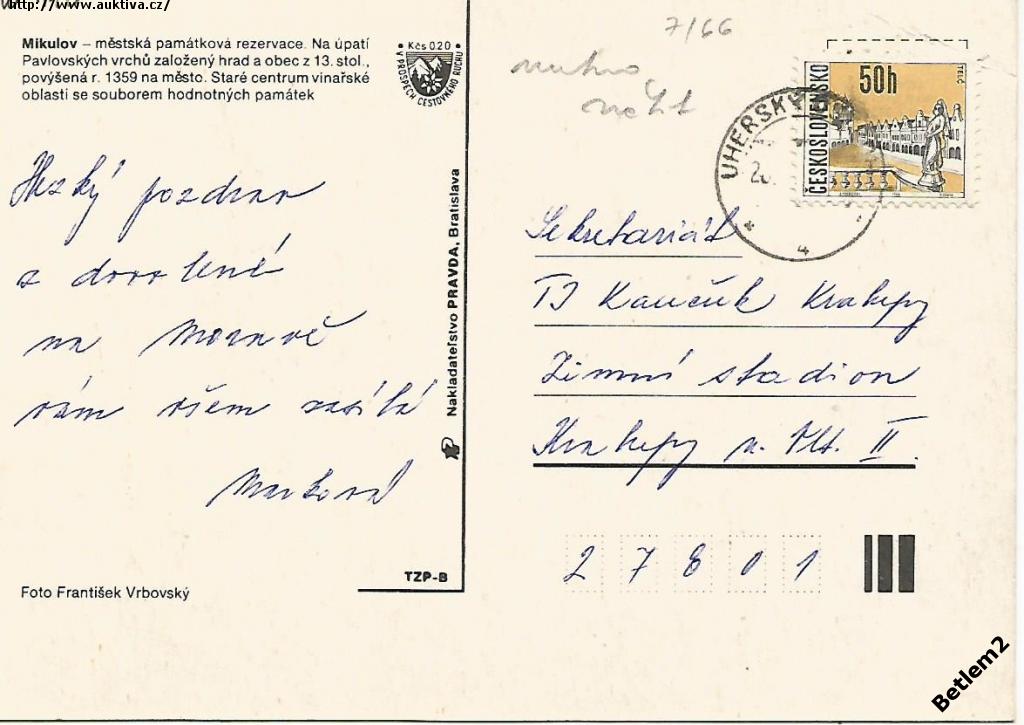 http://www.auktiva.cz/
Mikulov – městská památková rezervace. Na úpatí
Pavlovských vrchů založený hrad a obec z 13. stol.,
povýšená r. 1359 na město. Staré centrum vinařské
oblasti se souborem hodnotných památek
• Kčs 0,20 •
V PROSPĚCH CESTOVNÉHO RUCHU
Hezký pozdrav
z dovolené
na Moravě
vám všem zasílá
Marková
Foto František Vrbovský
Nakladateľstvo PRAVDA, Bratislava
TZP-B
7/66
UHERSKÝ
4
ČESKOSLOVENSKO
50h
TELČ
Sekretariát
TJ Kaučuk Kralupy
Zimní stadion
Kralupy n. Vlt. II.
2 7 8 0 1
Betlem2